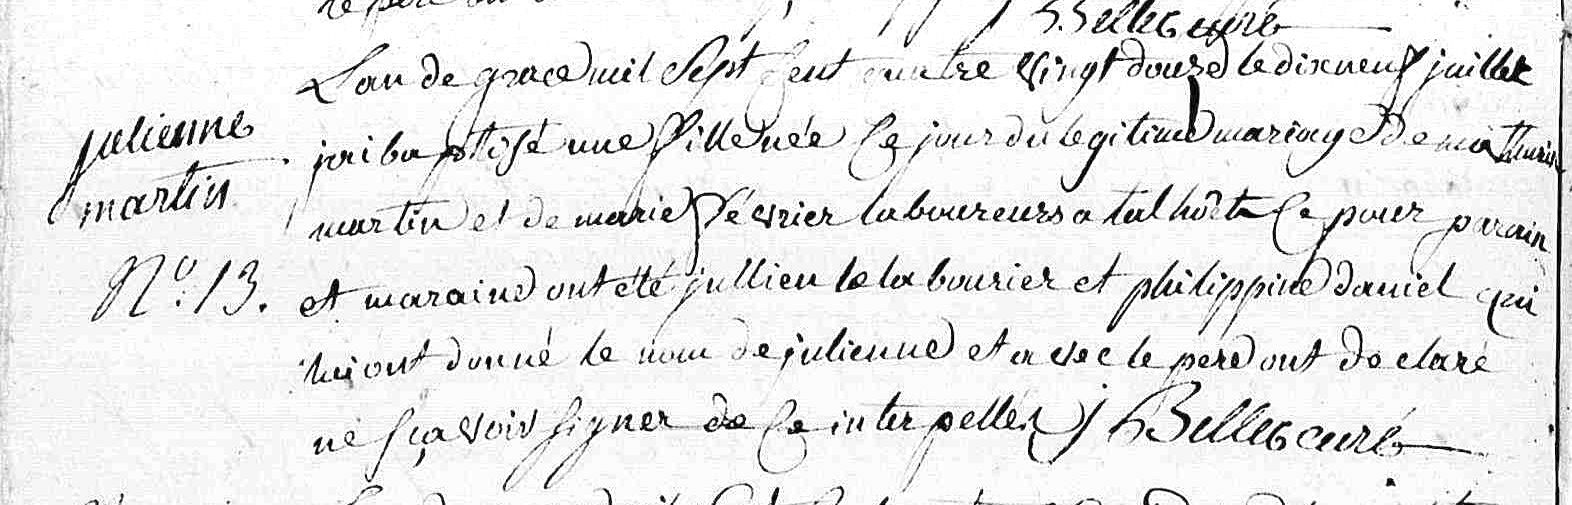 Belles curé
Lan de grace mil Sept Cent quatre vingt douze le dix neuf juillet
julienne
martin
N.º 13.
jai baptisé une fille née Ce jour du legitime mariage de mathurin
martin et de marie Février laboureurs a talhöet Ce pour parain
et maraine ont été jullien le labourier et philippine daniel qui
lui ont donné le nom de julienne et avec le pere ont declaré
ne sçavoir signer de Ce interpellés j Belles curé